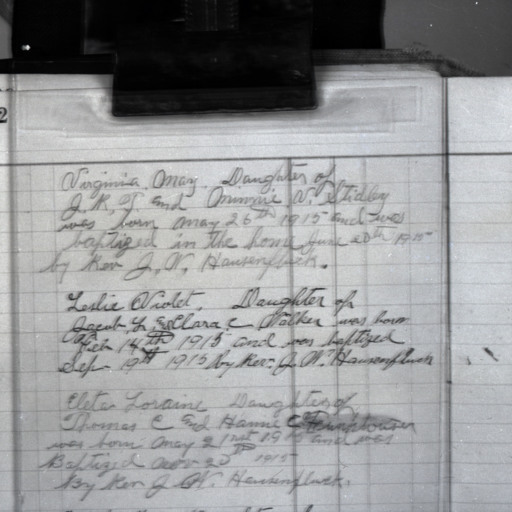 2
Virginia May. Daughter of
J. R. J. and Minnie V. Stidley
was born May 26th 1915 and was
baptized in the home June 20th 1915
by Rev J. W. Hausenfluck.
Leslie Violet. Daughter of
Jacob L & Clara C Walker was born
Feb 14th 1915 and was baptized
Sep 19th 1915 by Rev. J. W. Hausenfluck
Eleta Loraine Daughter of
Thomas C and Hannie C
was born May 21 1915 and was
Baptized 1915
By Rev J W. Hausenfluck.